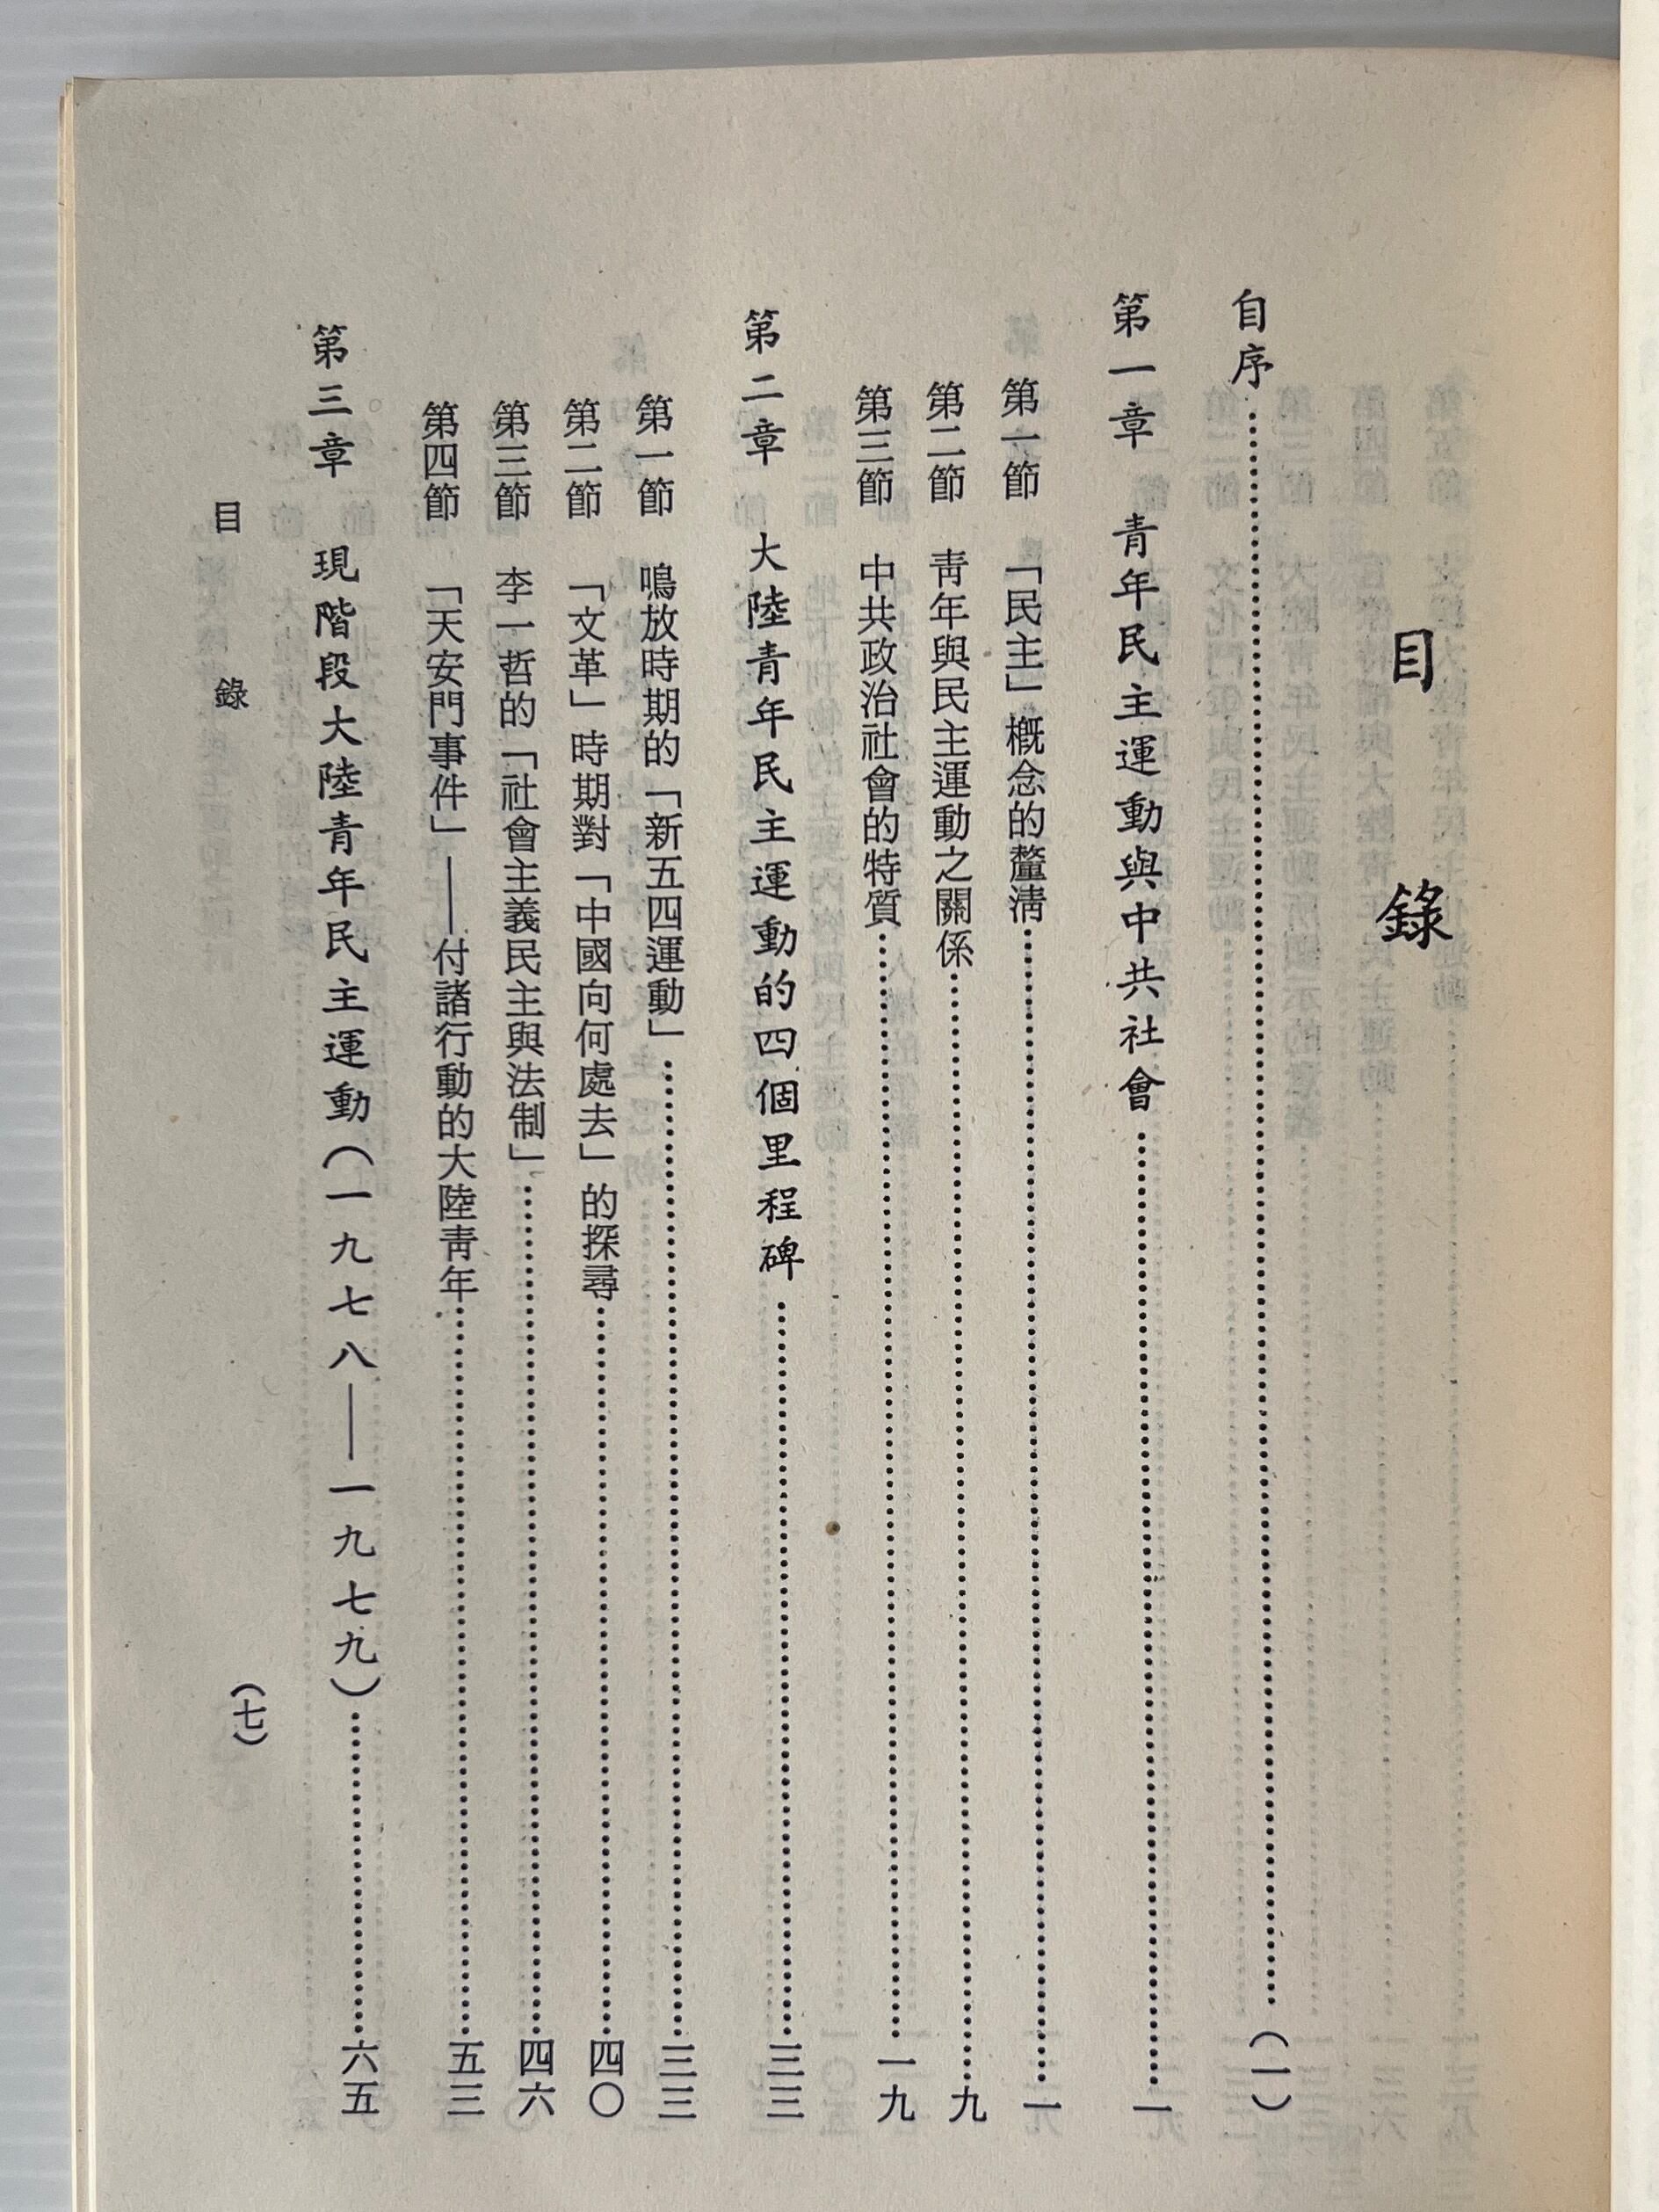 目錄
自序……(一)
第一章　青年民主運動與中共社會……一
第一節　「民主」概念的釐清……一
第二節　青年與民主運動之關係……九
第三節　中共政治社會的特質……一九
第二章　大陸青年民主運動的四個里程碑……三三
第一節　鳴放時期的「新五四運動」……三三
第二節　「文革」時期對「中國向何處去」的探尋……四〇
第三節　李一哲的「社會主義民主與法制」……四六
第四節　「天安門事件」——付諸行動的大陸青年……五三
第三章　現階段大陸青年民主運動(一九七八——一九七九)……六五
目錄　(七)